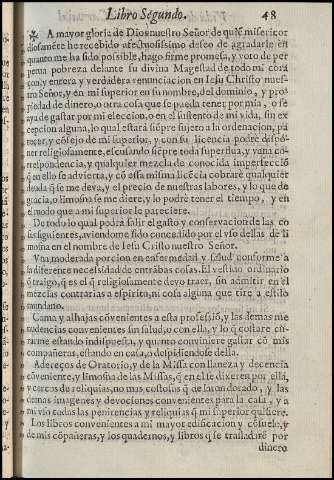 Libro Segundo. 48
A mayor gloria de Dios nuestro Señor de quiẽ misericor
diosamẽte he recebido afectuosissimo deseo de agradarle en
quanto me ha sido possible, hago firme promesa, y voto de per
petua pobreza delante su divina Magestad de todo mi cora
çon, y entera y verdadera renunciacion en Iesu Christo nues-
tro Señor, y en mi superior en su nombre, del dominio, y pro
piedad de dinero, o otra cosa que se pueda tener por mia, o se
aya de gastar por mi eleccion, o en el sustento de mi vida, sin ex
cepcion alguna, lo qual estará siẽpre sujeto a la ordenacion, pa
recer, y cõsejo de mi superior, y con su licencia podré dispo-
ner religiosamente, escusando siẽpre toda superflua, y vana co
rrespondencia, y qualquier mezcla de conocida imperfecciõ
q̃ en ello se advierta, y cõ essa misma licẽcia cobraré qualquier
deuda q̃ se me deva, y el precio de nuestras labores, y lo que de
gracia, o limosna se me diere, y lo podré tener el tiempo, y en
el modo que a mi superior le pareciere.
De todo lo qual podrá salir el gasto y conservacion de las co
sas siguientes, aviendome sido concedido por el vso dellas de li
mosna en el nombre de Iesu Cristo nuestro Señor.
Vna moderada porcion en enfermedad y salud conforme a
la diferente necessidad de entrãbas cosas. El vestido ordinario
q̃ traigo, q̃ es el q̃ religiosamente devo traer, sin admitir en el
mezclas contrarias a espiritu, ni cosa alguna que tire a estilo
mundano.
Cama y alhajas cõvenientes a esta professiõ, y las demas me
nudencias convenientes sin salud, o con ella, y lo q̃ costare cu
rarme estando indispuesta, y quanto conviniere gastar cõ mis
compañeras, estando en casa, o despidiendose della.
Adereços de Oratorio, y de la Missa con llaneza y decencia
cõveniente, y limosna de las Missas, q̃ en el se dixeren por ella,
y cercos de reliquias, no mas costosos q̃ de laton dorado, y las
demas imagenes y devociones convenientes para la casa, y a
mi vso todas las penitencias y reliquias q̃ mi superior quisiere.
Los libros convenientes a mi mayor edificacion y cõsuelo, y
de mis cõpañeras, y los quadernos, y libros q̃ se trasladarẽ por
dinero